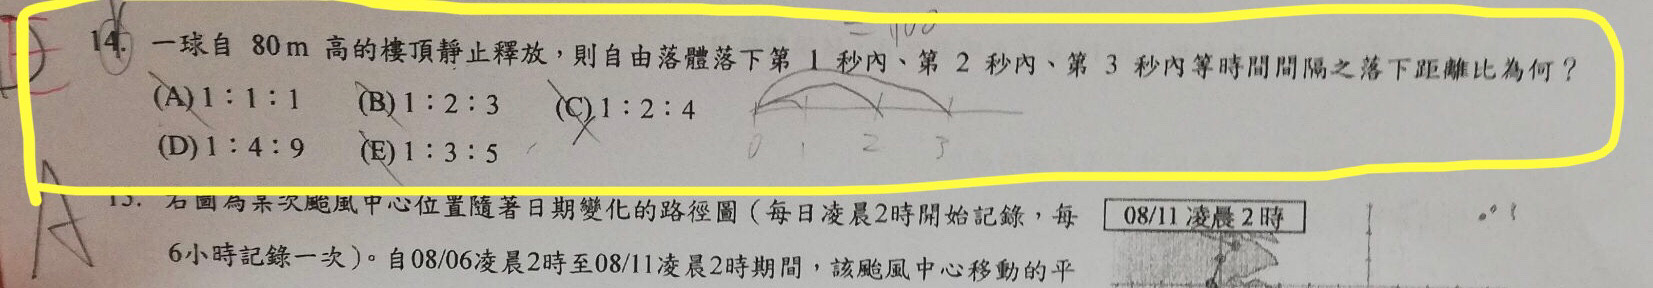 = 400
14. 一球自 80 m 高的樓頂靜止釋放，則自由落體落下第 1 秒內、第 2 秒內、第 3 秒內等時間間隔之落下距離比為何？
(A) 1：1：1 (B) 1：2：3 (C) 1：2：4
(D) 1：4：9 (E) 1：3：5
0 1 2 3
E
A
15. 右圖為某次颱風中心位置隨著日期變化的路徑圖（每日凌晨2時開始記錄，每
6小時記錄一次）。自08/06凌晨2時至08/11凌晨2時期間，該颱風中心移動的平
08/11 凌晨 2 時